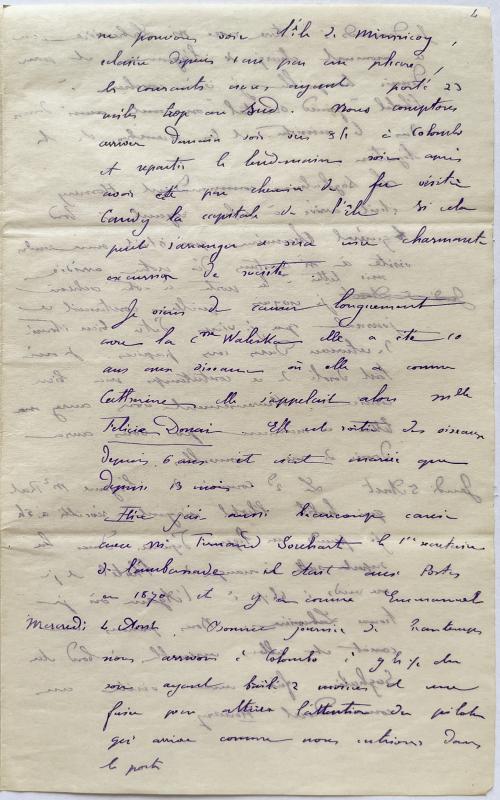 4
ne pouvons voir l'île de Minnicoy,
éclairée depuis 1 an par un phare,
les courants nous ayant porté 23
milles trop au Sud. Nous comptons
arriver demain soir vers 9h à Colombo
et repartir le lendemain soir après
avoir été par chemin de fer visiter
Candy la capitale de l'île si cela
peut s'arranger ce sera une charmante
excursion de société
Je viens de causer longuement
avec la Ctesse Waleska elle a été 10
ans aux oiseaux où elle a connu
Catherine elle s'appelait alors Mlle
Félicie Douai Elle est sortie des oiseaux
depuis 6 ans et n'est mariée que
depuis 13 mois
Hier j'ai aussi beaucoup causé
avec M. Fernand Souhart le 1er secrétaire
d'ambassade il était aux Postes
en 1870 et y a connu Emmanuel
Mercredi 4 Août. Bonne journée de Printemps
nous arrivons à Colombo à 9h ½ du
soir ayant brûlé 2 amorces et une
fusée pour attirer l'attention du pilote
qui arrive comme nous entrions dans
le port